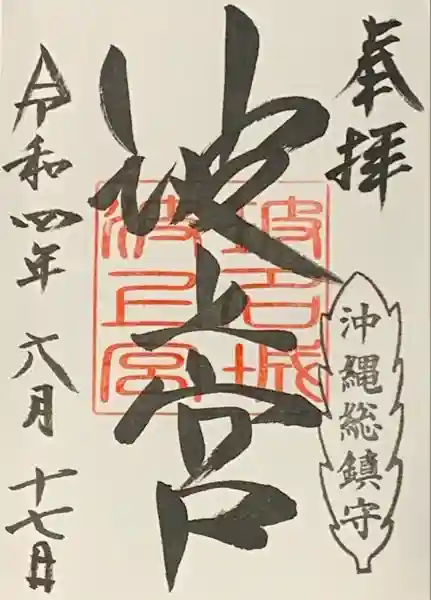 奉拝
沖縄総鎮守
波上宮
令和四年六月十七日